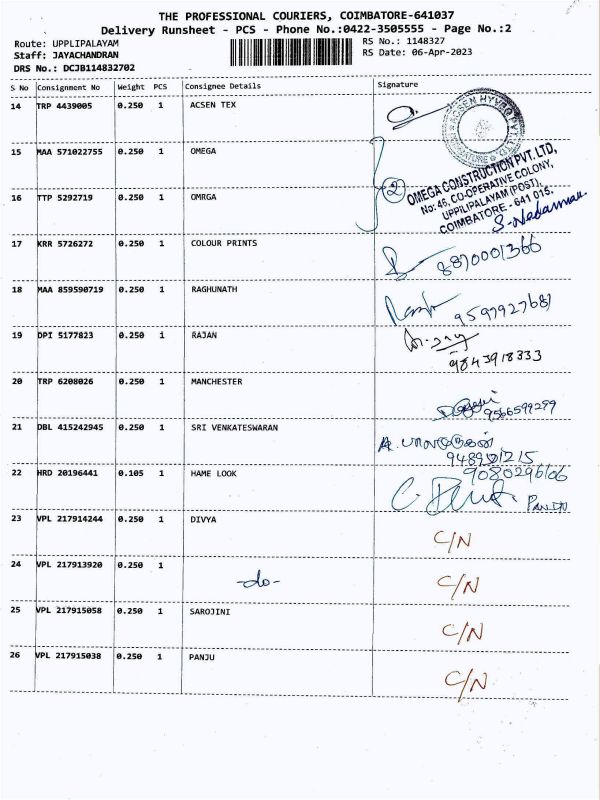 THE PROFESSIONAL COURIERS, COIMBATORE-641037
Delivery Runsheet - PCS - Phone No.:0422-3505555 - Page No.:2
Route: UPPLIPALAYAM RS No.: 1148327
Staff: JAYACHANDRAN RS Date: 06-Apr-2023
DRS No.: DCJB114832702
S No Consignment No Weight PCS Consignee Details Signature
14 TRP 4439005 0.250 1 ACSEN TEX
ACSEN HYVEG PVT. LTD.
15 MAA 571022755 0.250 1 OMEGA
2
OMEGA CONSTRUCTION PVT. LTD,
No: 46, CO.OPERATIVE COLONY,
UPPILIPALAYAM (POST),
COIMBATORE - 641 015.
16 TTP 5292719 0.250 1 OMRGA
17 KRR 5726272 0.250 1 COLOUR PRINTS
8870001366
18 MAA 859590719 0.250 1 RAGHUNATH
9597927687
19 DPI 5177823 0.250 1 RAJAN
9843918333
20 TRP 6208026 0.250 1 MANCHESTER
9566599299
21 DBL 415242945 0.250 1 SRI VENKATESWARAN
22 HRD 20196441 0.105 1 HAME LOOK
9080296106
23 VPL 217914244 0.250 1 DIVYA C/N
24 VPL 217913920 0.250 1 -do- C/N
25 VPL 217915058 0.250 1 SAROJINI C/N
26 VPL 217915038 0.250 1 PANJU C/N